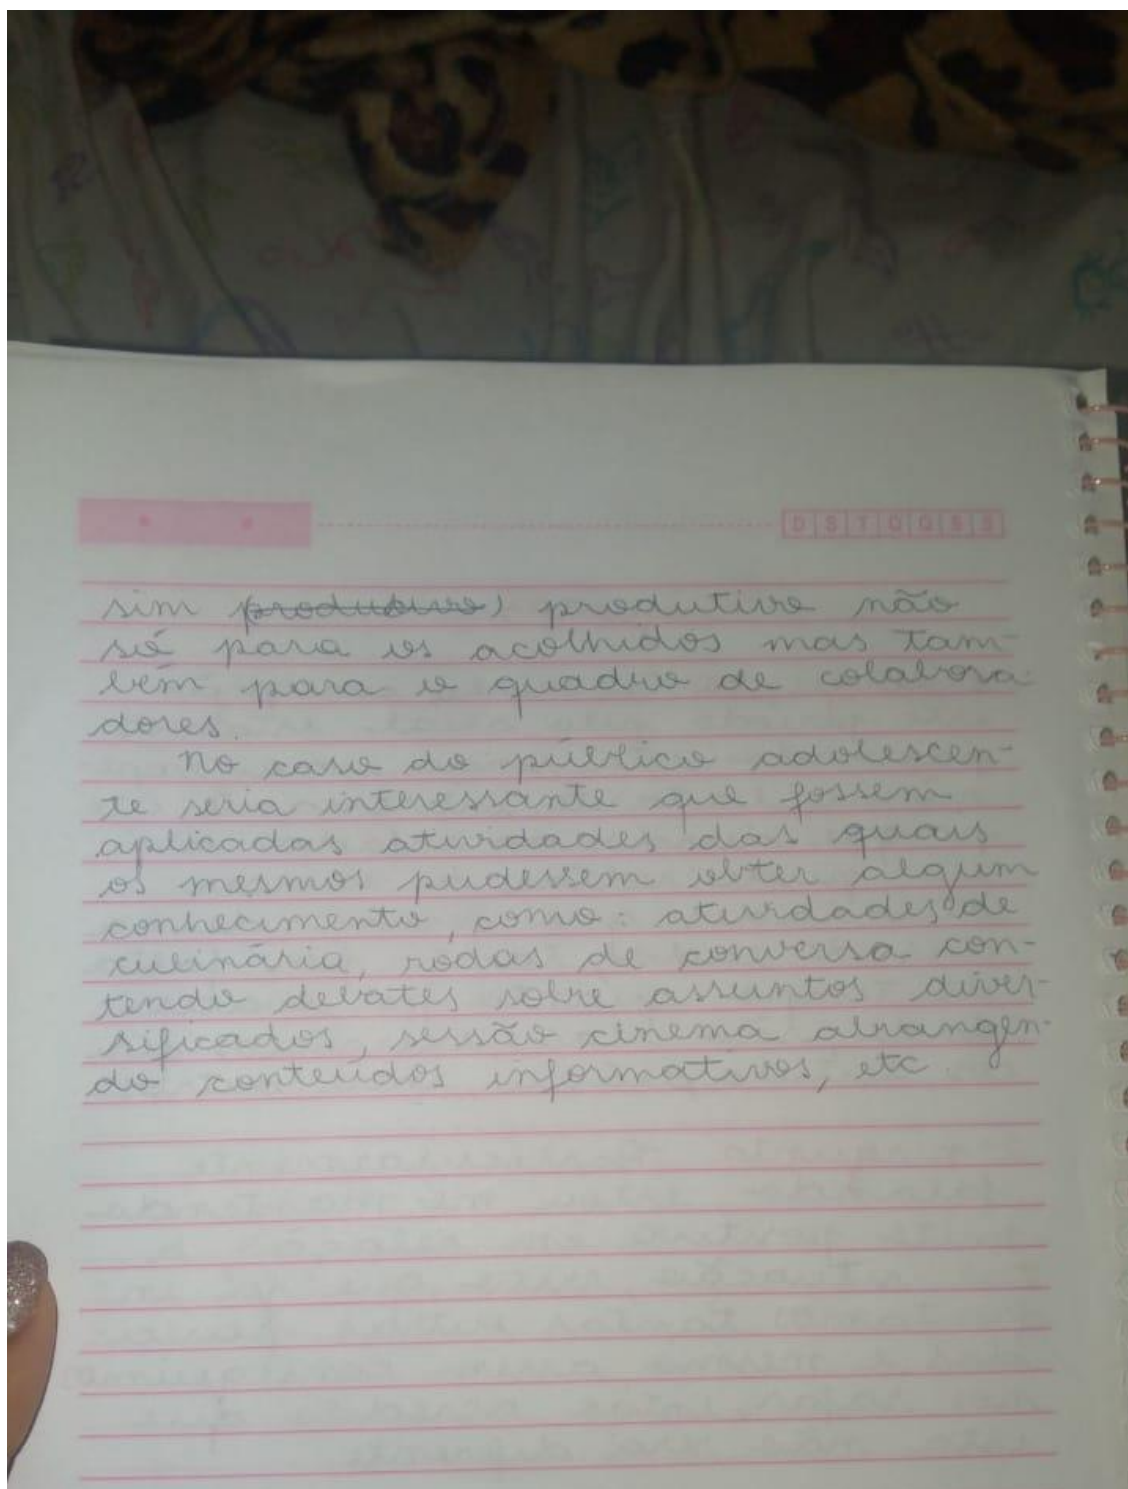 D S T Q Q S S
sim (produtivo) produtivo não
só para os acolhidos mas tam-
bém para o quadro de colabora-
dores.
No caso do público adolescen-
te seria interessante que fossem
aplicadas atividades das quais
os mesmos pudessem obter algum
conhecimento, como: atividades de
culinária, rodas de conversa con-
tendo debates sobre assuntos diver-
sificados, sessão cinema abrangen-
do conteúdos informativos, etc.